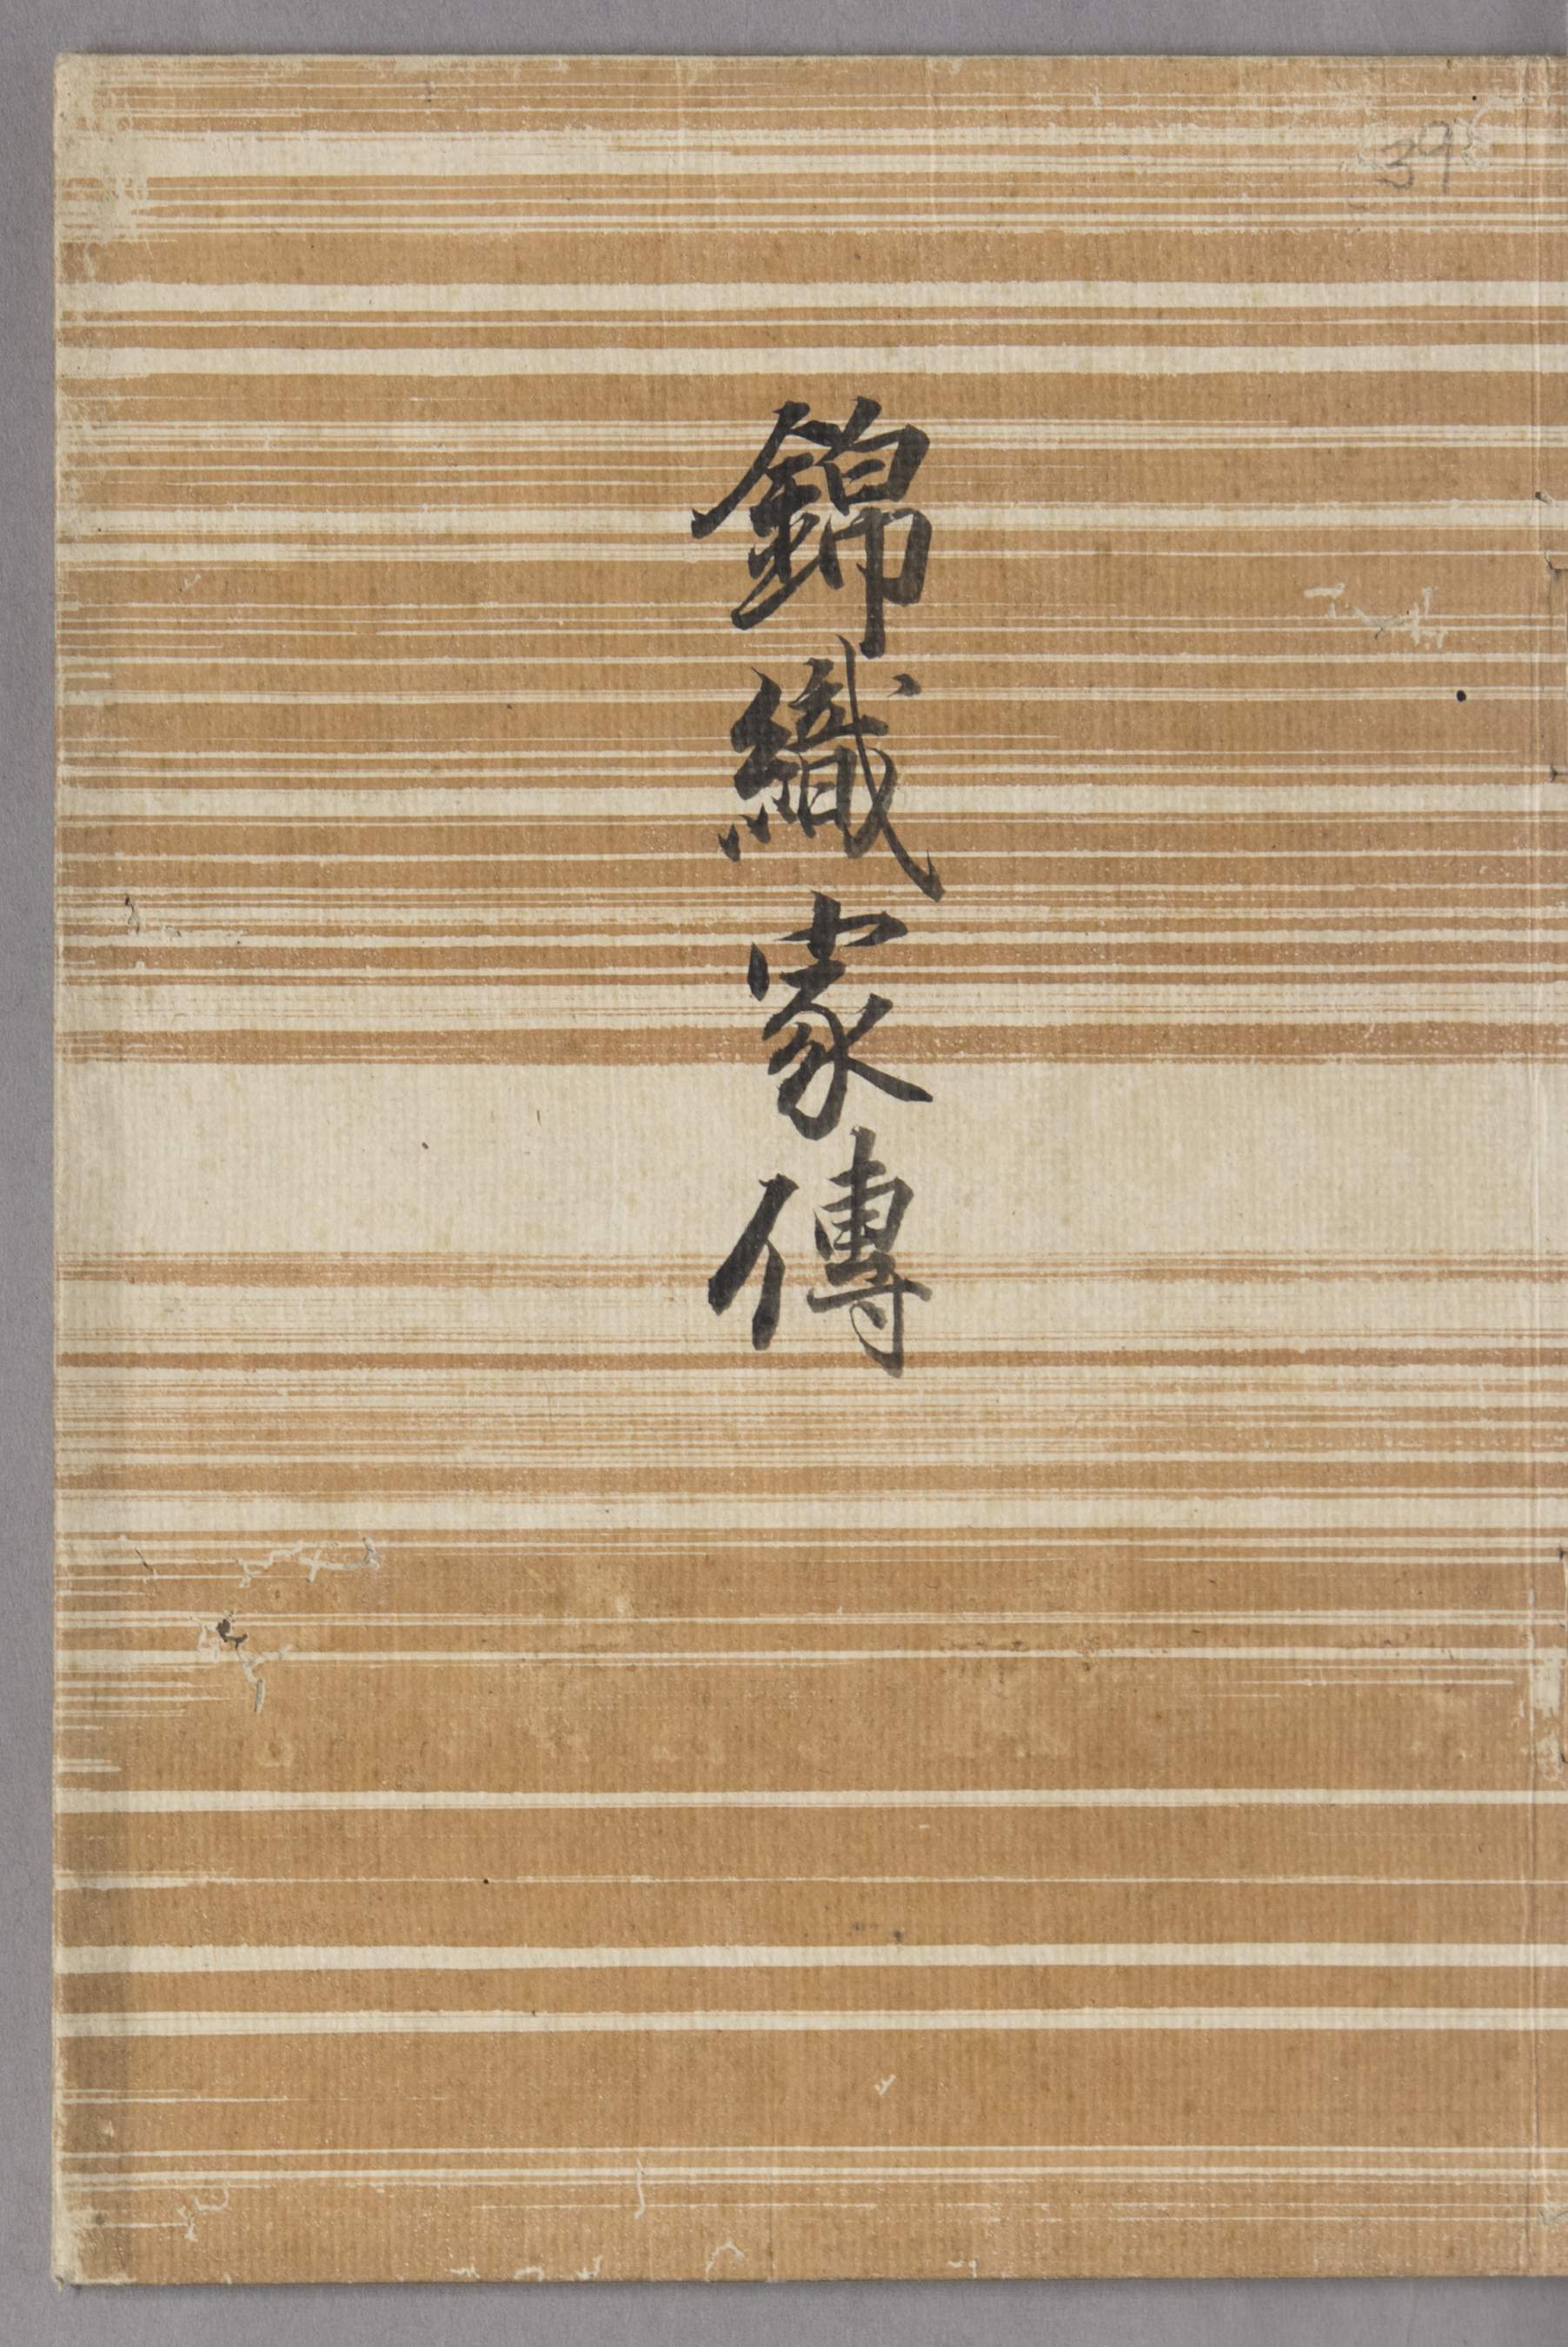 錦織家傳
39